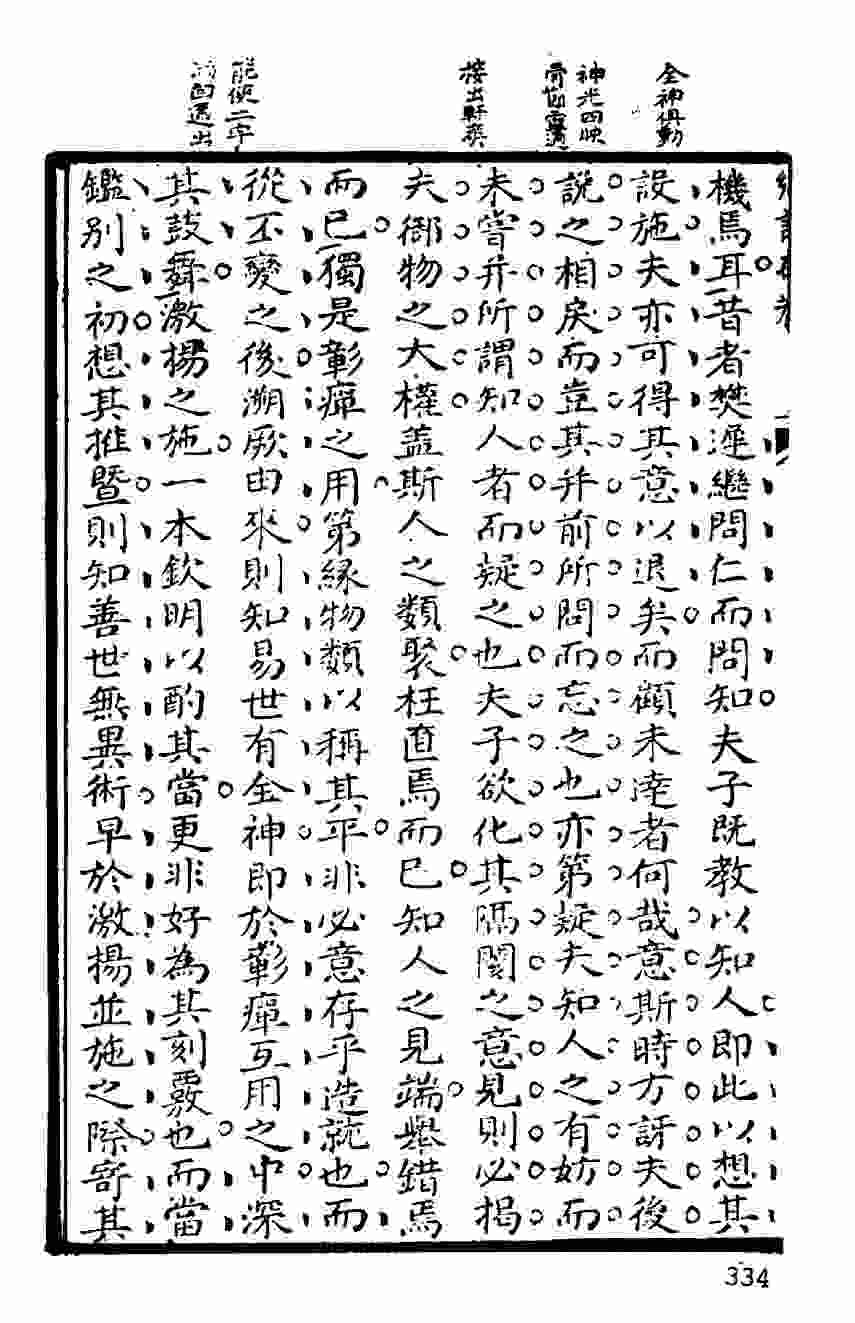 全神俱動
神光四映
骨節靈通
接出軒爽
能使二字
四面透出
機焉耳昔者樊遲繼問仁而問知夫子既教以知人即此以想其
設施夫亦可得其意以退矣而顧未達者何哉意斯時方訝夫後
說之相戾而豈其并前所問而忘之也亦第疑夫知人之有妨而
未嘗并所謂知人者而疑之也夫子欲化其隔閡之意見則必揭
夫御物之大權蓋斯人之類聚枉直焉而已知人之見端舉錯焉
而已獨是彰癉之用第緣物類以稱其平非必意存乎造就也而
從丕變之後溯厥由來則知易世有全神即於彰癉互用之中深
其鼓舞激揚之施一本欽明以酌其當更非好為其刻覈也而當
鑑別之初想其推暨則知善世無異術早於激揚並施之際寄其
334